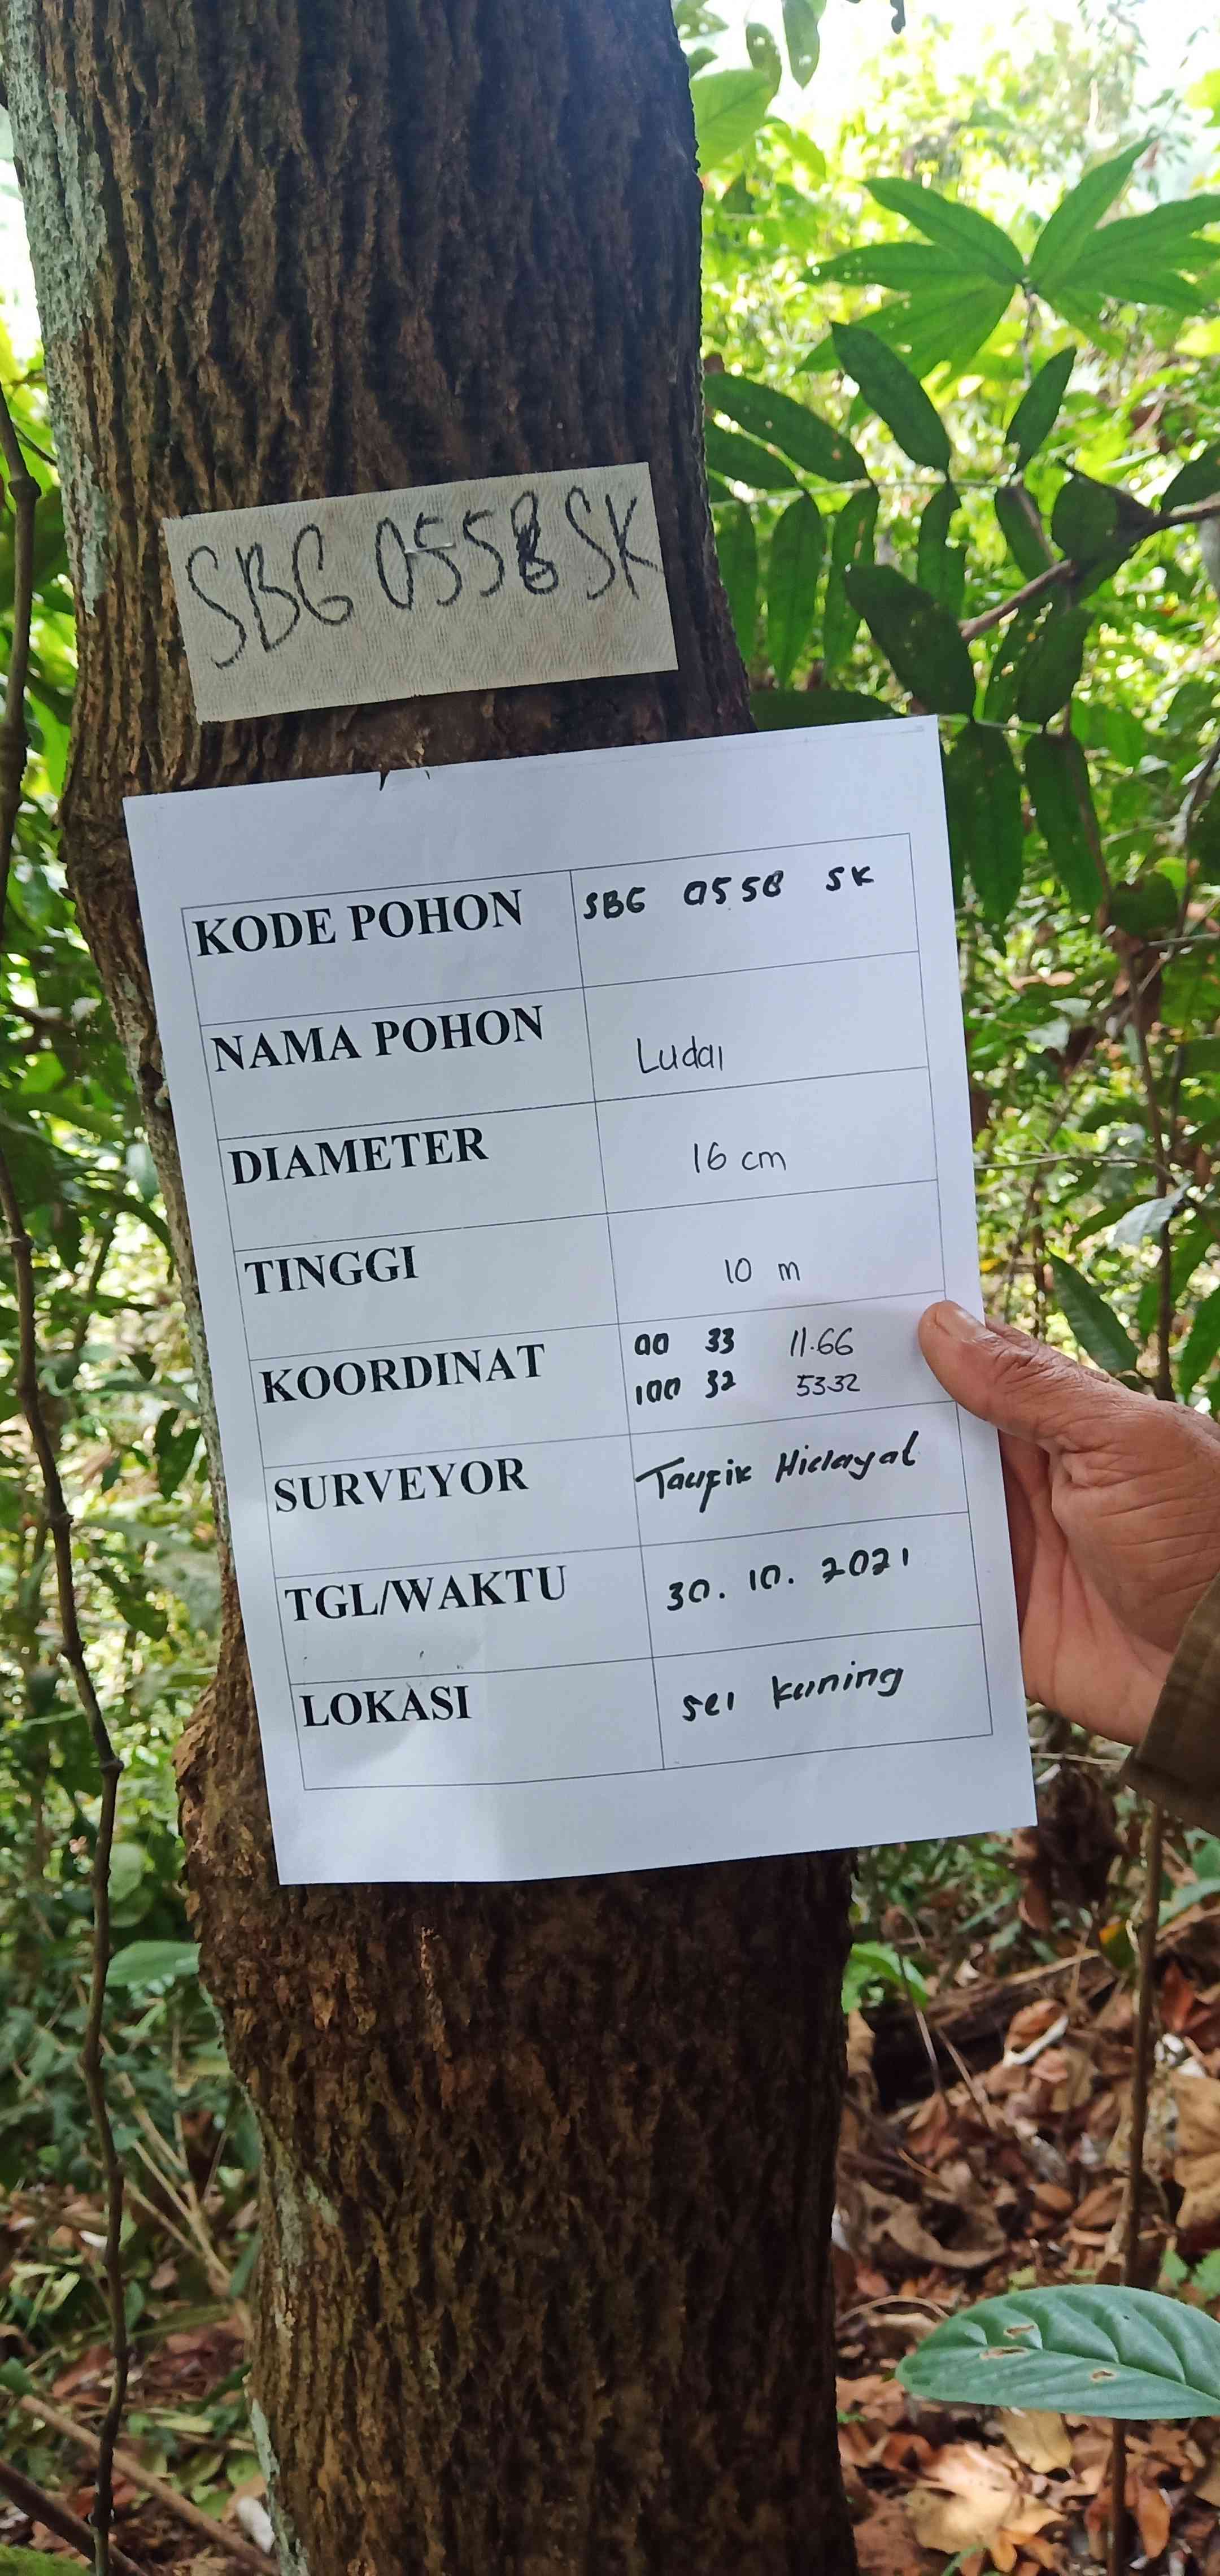 SBG 0558 SK
KODE POHON SBG 0558 SK
NAMA POHON Ludai
DIAMETER 16 cm
TINGGI 10 m
KOORDINAT 00 33 11.66
100 32 53.32
SURVEYOR Taufik Hidayat
TGL/WAKTU 30. 10. 2021
LOKASI sei kuning